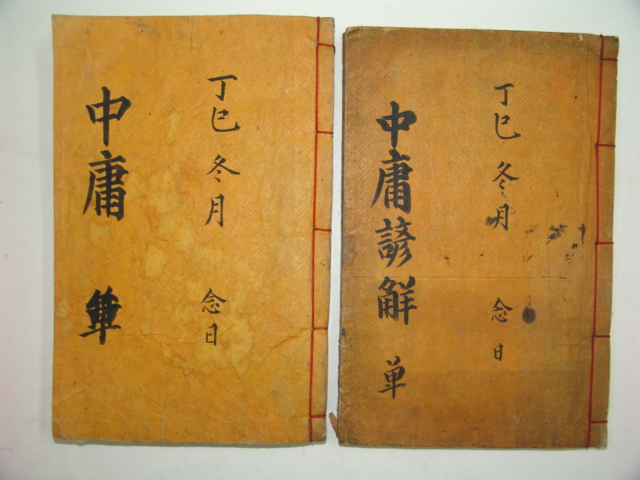 丁巳 冬月 念日
中庸諺觧 单
丁巳 冬月 念日
中庸 單